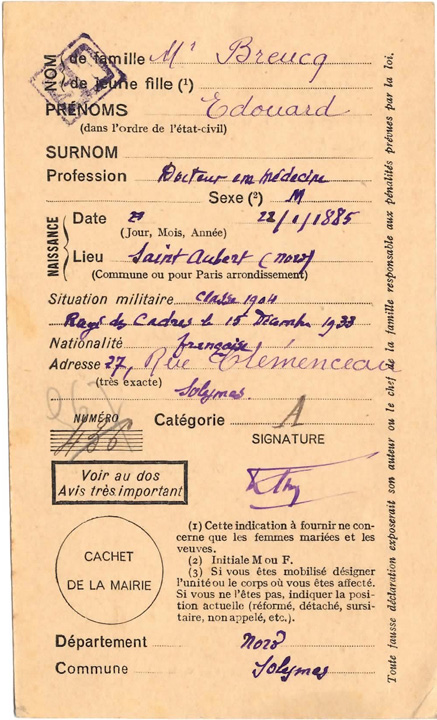 NOM de famille Mr Breucq
de jeune fille (1)
PRÉNOMS Edouard
(dans l'ordre de l'état-civil)
SURNOM
Profession Docteur en médecine
Sexe (2) M
NAISSANCE
Date 22/1/1885
(Jour, Mois, Année)
Lieu Saint Aubert (nord)
(Commune ou pour Paris arrondissement)
Situation militaire classe 1904
Rayé des Cadres le 15 Décembre 1933
Nationalité française
Adresse 27, Rue Clémenceau
(très exacte) Solesmes
NUMÉRO Catégorie A
436
SIGNATURE
Voir au dos
Avis très important
(1) Cette indication à fournir ne con-
cerne que les femmes mariées et les
veuves.
(2) Initiale M ou F.
(3) Si vous êtes mobilisé désigner
l'unité ou le corps où vous êtes affecté.
Si vous ne l'êtes pas, indiquer la posi-
tion actuelle (réformé, détaché, sursi-
taire, non appelé, etc.).
CACHET
DE LA MAIRIE
Département Nord
Commune Solesmes
Toute fausse déclaration exposerait son auteur ou le chef de la famille responsable aux pénalités prévues par la loi.